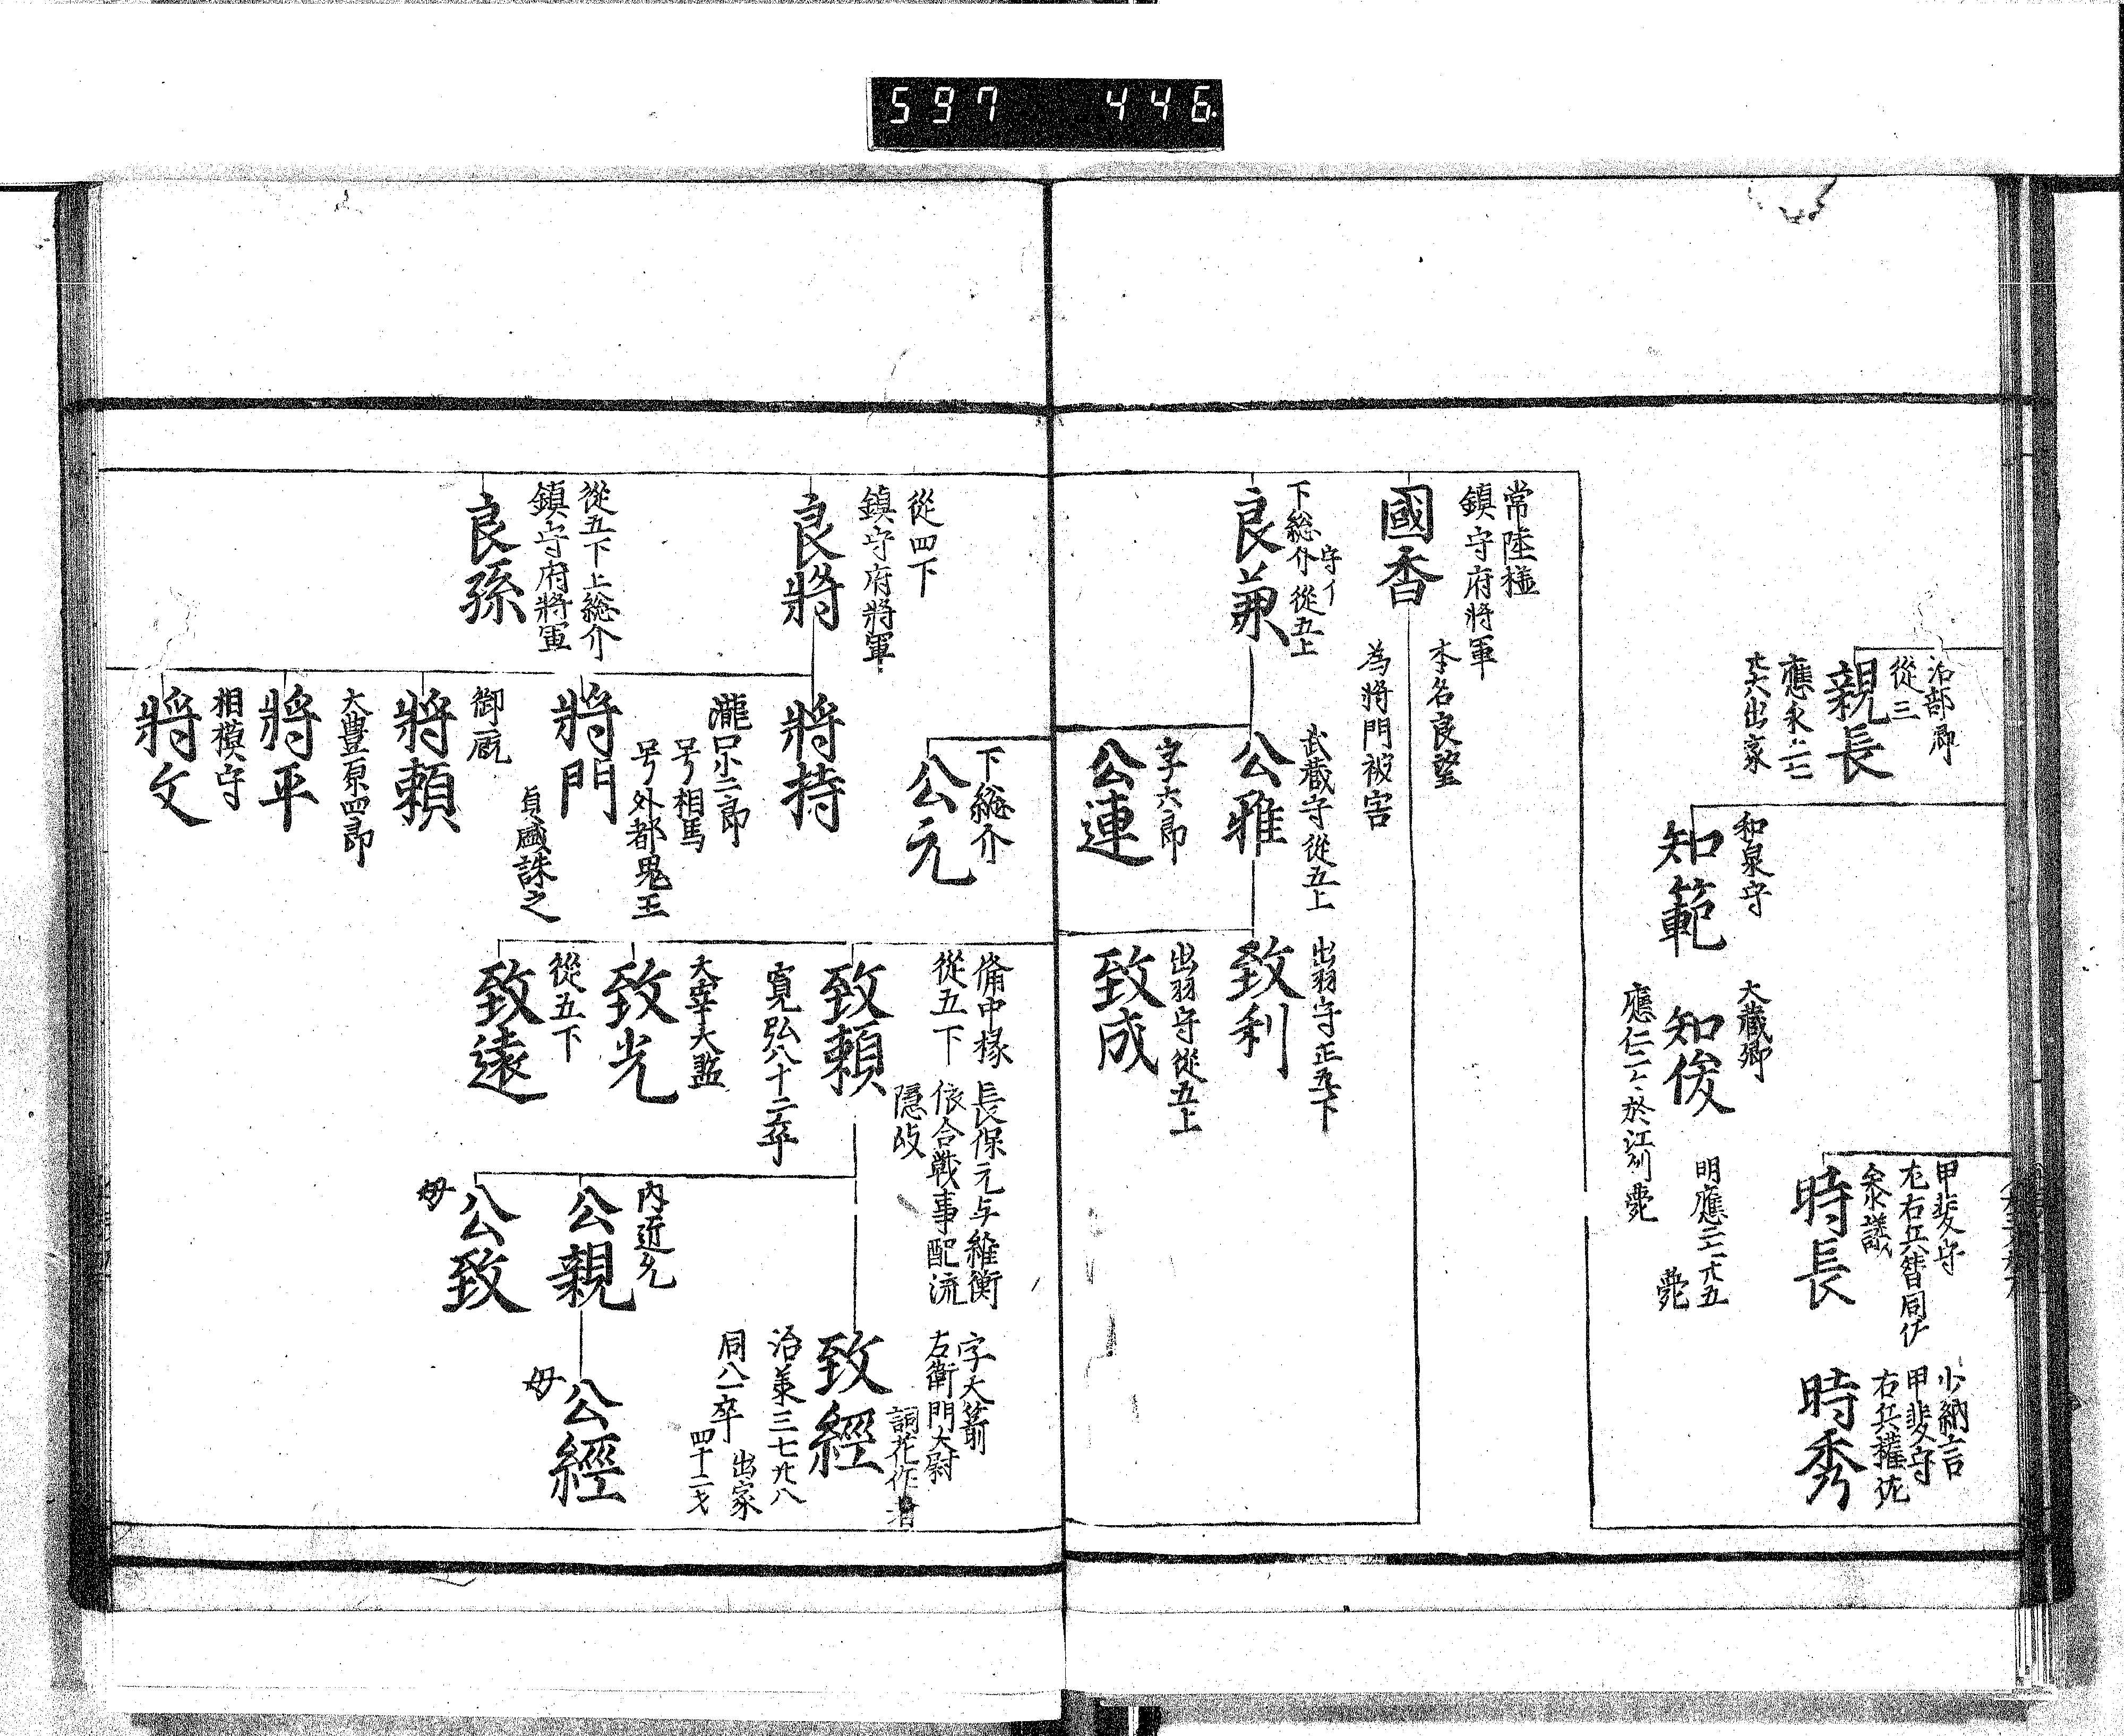 597 446
治部卿
從三
親長
應永
出家
和泉守
知範
大藏卿
知俊
應仁二
於江州薨
明應三
薨
甲斐守
左右兵督同佐
參議
時長
少納言
甲斐守
右兵權佐
時秀
常陸權
鎮守府將軍
國香
本名良望
為將門被害
下総介 從五上
守イ
良兼
武蔵守從五上
公雅
字六郎
公連
出羽守正五下
致利
出羽守從五上
致成
下総介
公元
備中掾
從五下
長保元与維衡
依合戰事配流
隠岐
致頼
寛弘八十二卒
大宰大監
致光
從五下
致遠
字大箭
左衛門大尉
詞花作者
致經
同八一卒
出家
四十二才
内近允
公親
母
公致
母
公經
從四下
鎮守府將軍
良將
將持
瀧口小二郎
号相馬
号外都鬼王
將門
貞盛誅之
御厩
將頼
大豊原四郎
將平
相模守
將文
從五下上総介
鎮守府將軍
良孫